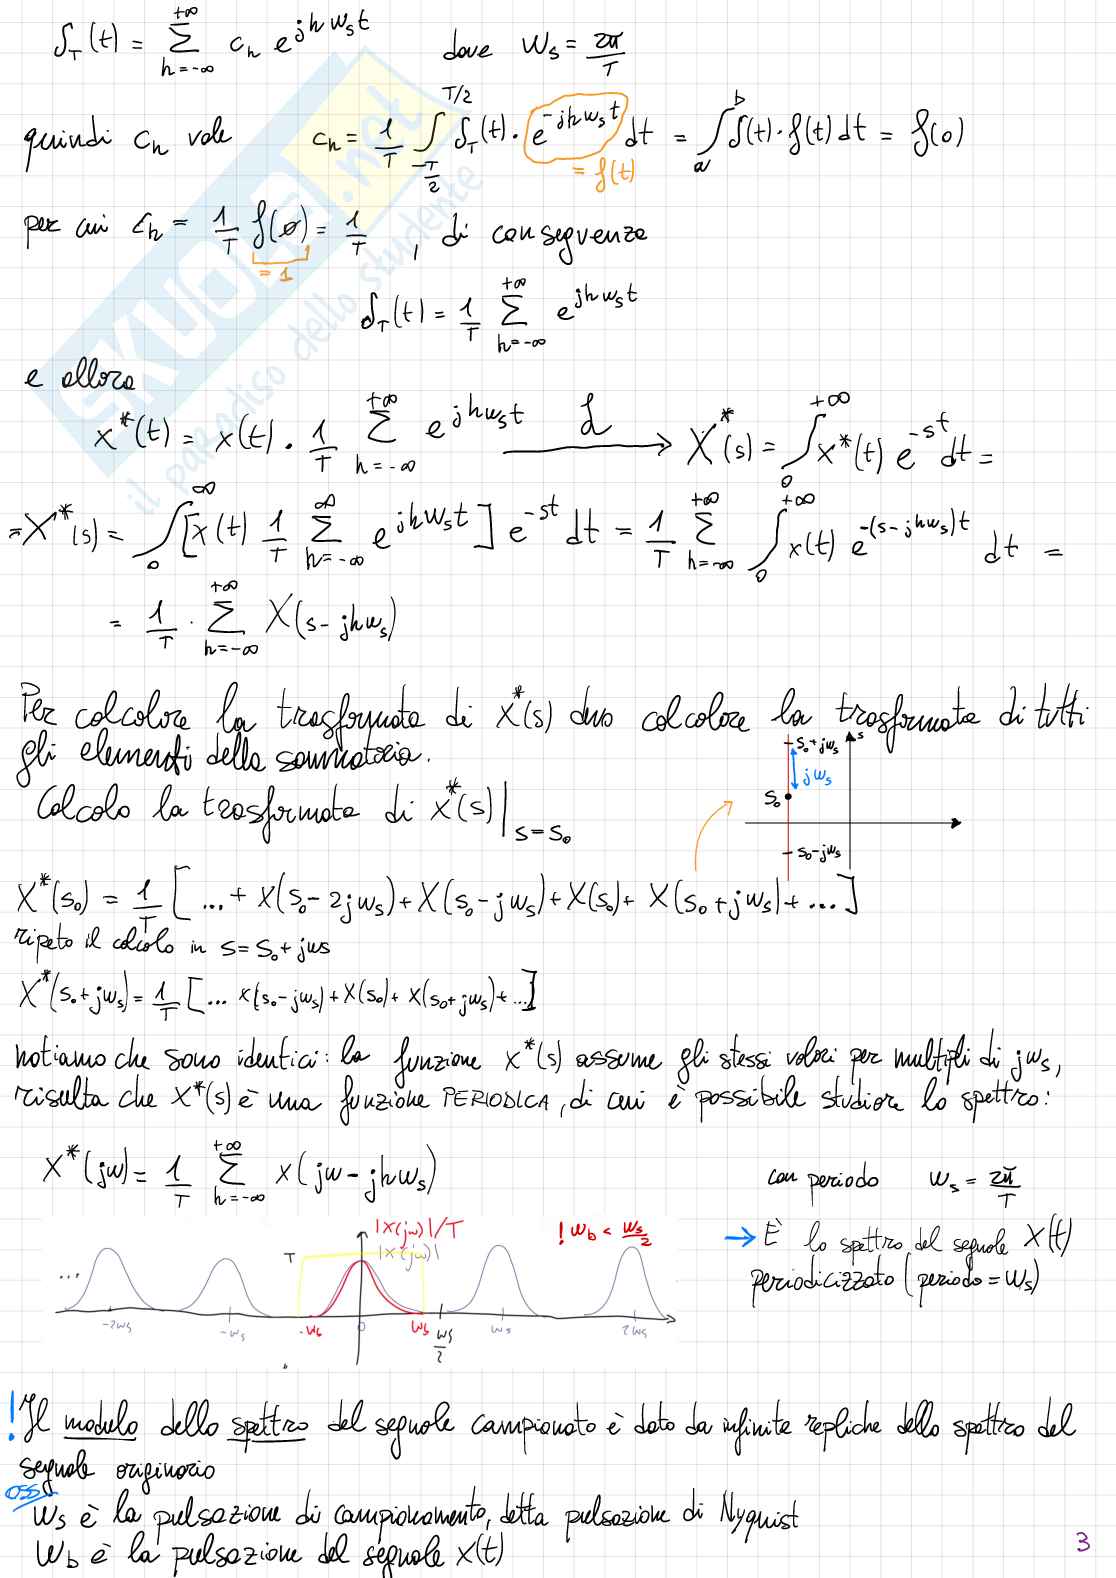 δ_T(t) = Σ_{h=-∞}^{+∞} c_h e^{jhω_s t} dove ω_s = 2π/T
quindi c_h vale c_h = 1/T ∫_{-T/2}^{T/2} δ_T(t) · e^{-jhω_s t} dt = ∫_a^b δ(t) · f(t) dt = f(0)
= f(t)
per cui c_h = 1/T f(0) = 1/T , di conseguenza
= 1
δ_T(t) = 1/T Σ_{h=-∞}^{+∞} e^{jhω_s t}
e allora
x*(t) = x(t) · 1/T Σ_{h=-∞}^{+∞} e^{jhω_s t} —ℒ→ X*(s) = ∫_0^{+∞} x*(t) e^{-st} dt =
= X*(s) = ∫_0^∞ [x(t) 1/T Σ_{h=-∞}^{∞} e^{jhω_s t}] e^{-st} dt = 1/T Σ_{h=-∞}^{+∞} ∫_0^{+∞} x(t) e^{-(s-jhω_s)t} dt =
= 1/T · Σ_{h=-∞}^{+∞} X(s-jhω_s)
Per calcolare la trasformata di X*(s) devo calcolare la trasformata di tutti
gli elementi della sommatoria.
s_0+jω_s s
jω_s
s_0
s_0-jω_s
Calcolo la trasformata di X*(s)|_{s=s_0}
X*(s_0) = 1/T [ ... + X(s_0-2jω_s) + X(s_0-jω_s) + X(s_0) + X(s_0+jω_s) + ... ]
ripeto il calcolo in s = s_0+jω_s
X*(s_0+jω_s) = 1/T [ ... X(s_0-jω_s) + X(s_0) + X(s_0+jω_s) + ... ]
notiamo che sono identici: la funzione X*(s) assume gli stessi valori per multipli di jω_s,
risulta che X*(s) è una funzione PERIODICA, di cui è possibile studiare lo spettro:
X*(jω) = 1/T Σ_{h=-∞}^{+∞} X(jω-jhω_s) con periodo ω_s = 2π/T
|X(jω)|/T
|X(jω)|
! ω_b < ω_s/2
T
...
-2ω_s -ω_s -ω_b 0 ω_b ω_s/2 ω_s 2ω_s
→ È lo spettro del segnale X(t)
periodicizzato (periodo = ω_s)
! Il modulo dello spettro del segnale campionato è dato da infinite repliche dello spettro del
segnale originario
OSS
ω_s è la pulsazione di campionamento, detta pulsazione di Nyquist
ω_b è la pulsazione del segnale x(t)
3
SKUOLA.net
il paradiso dello studente